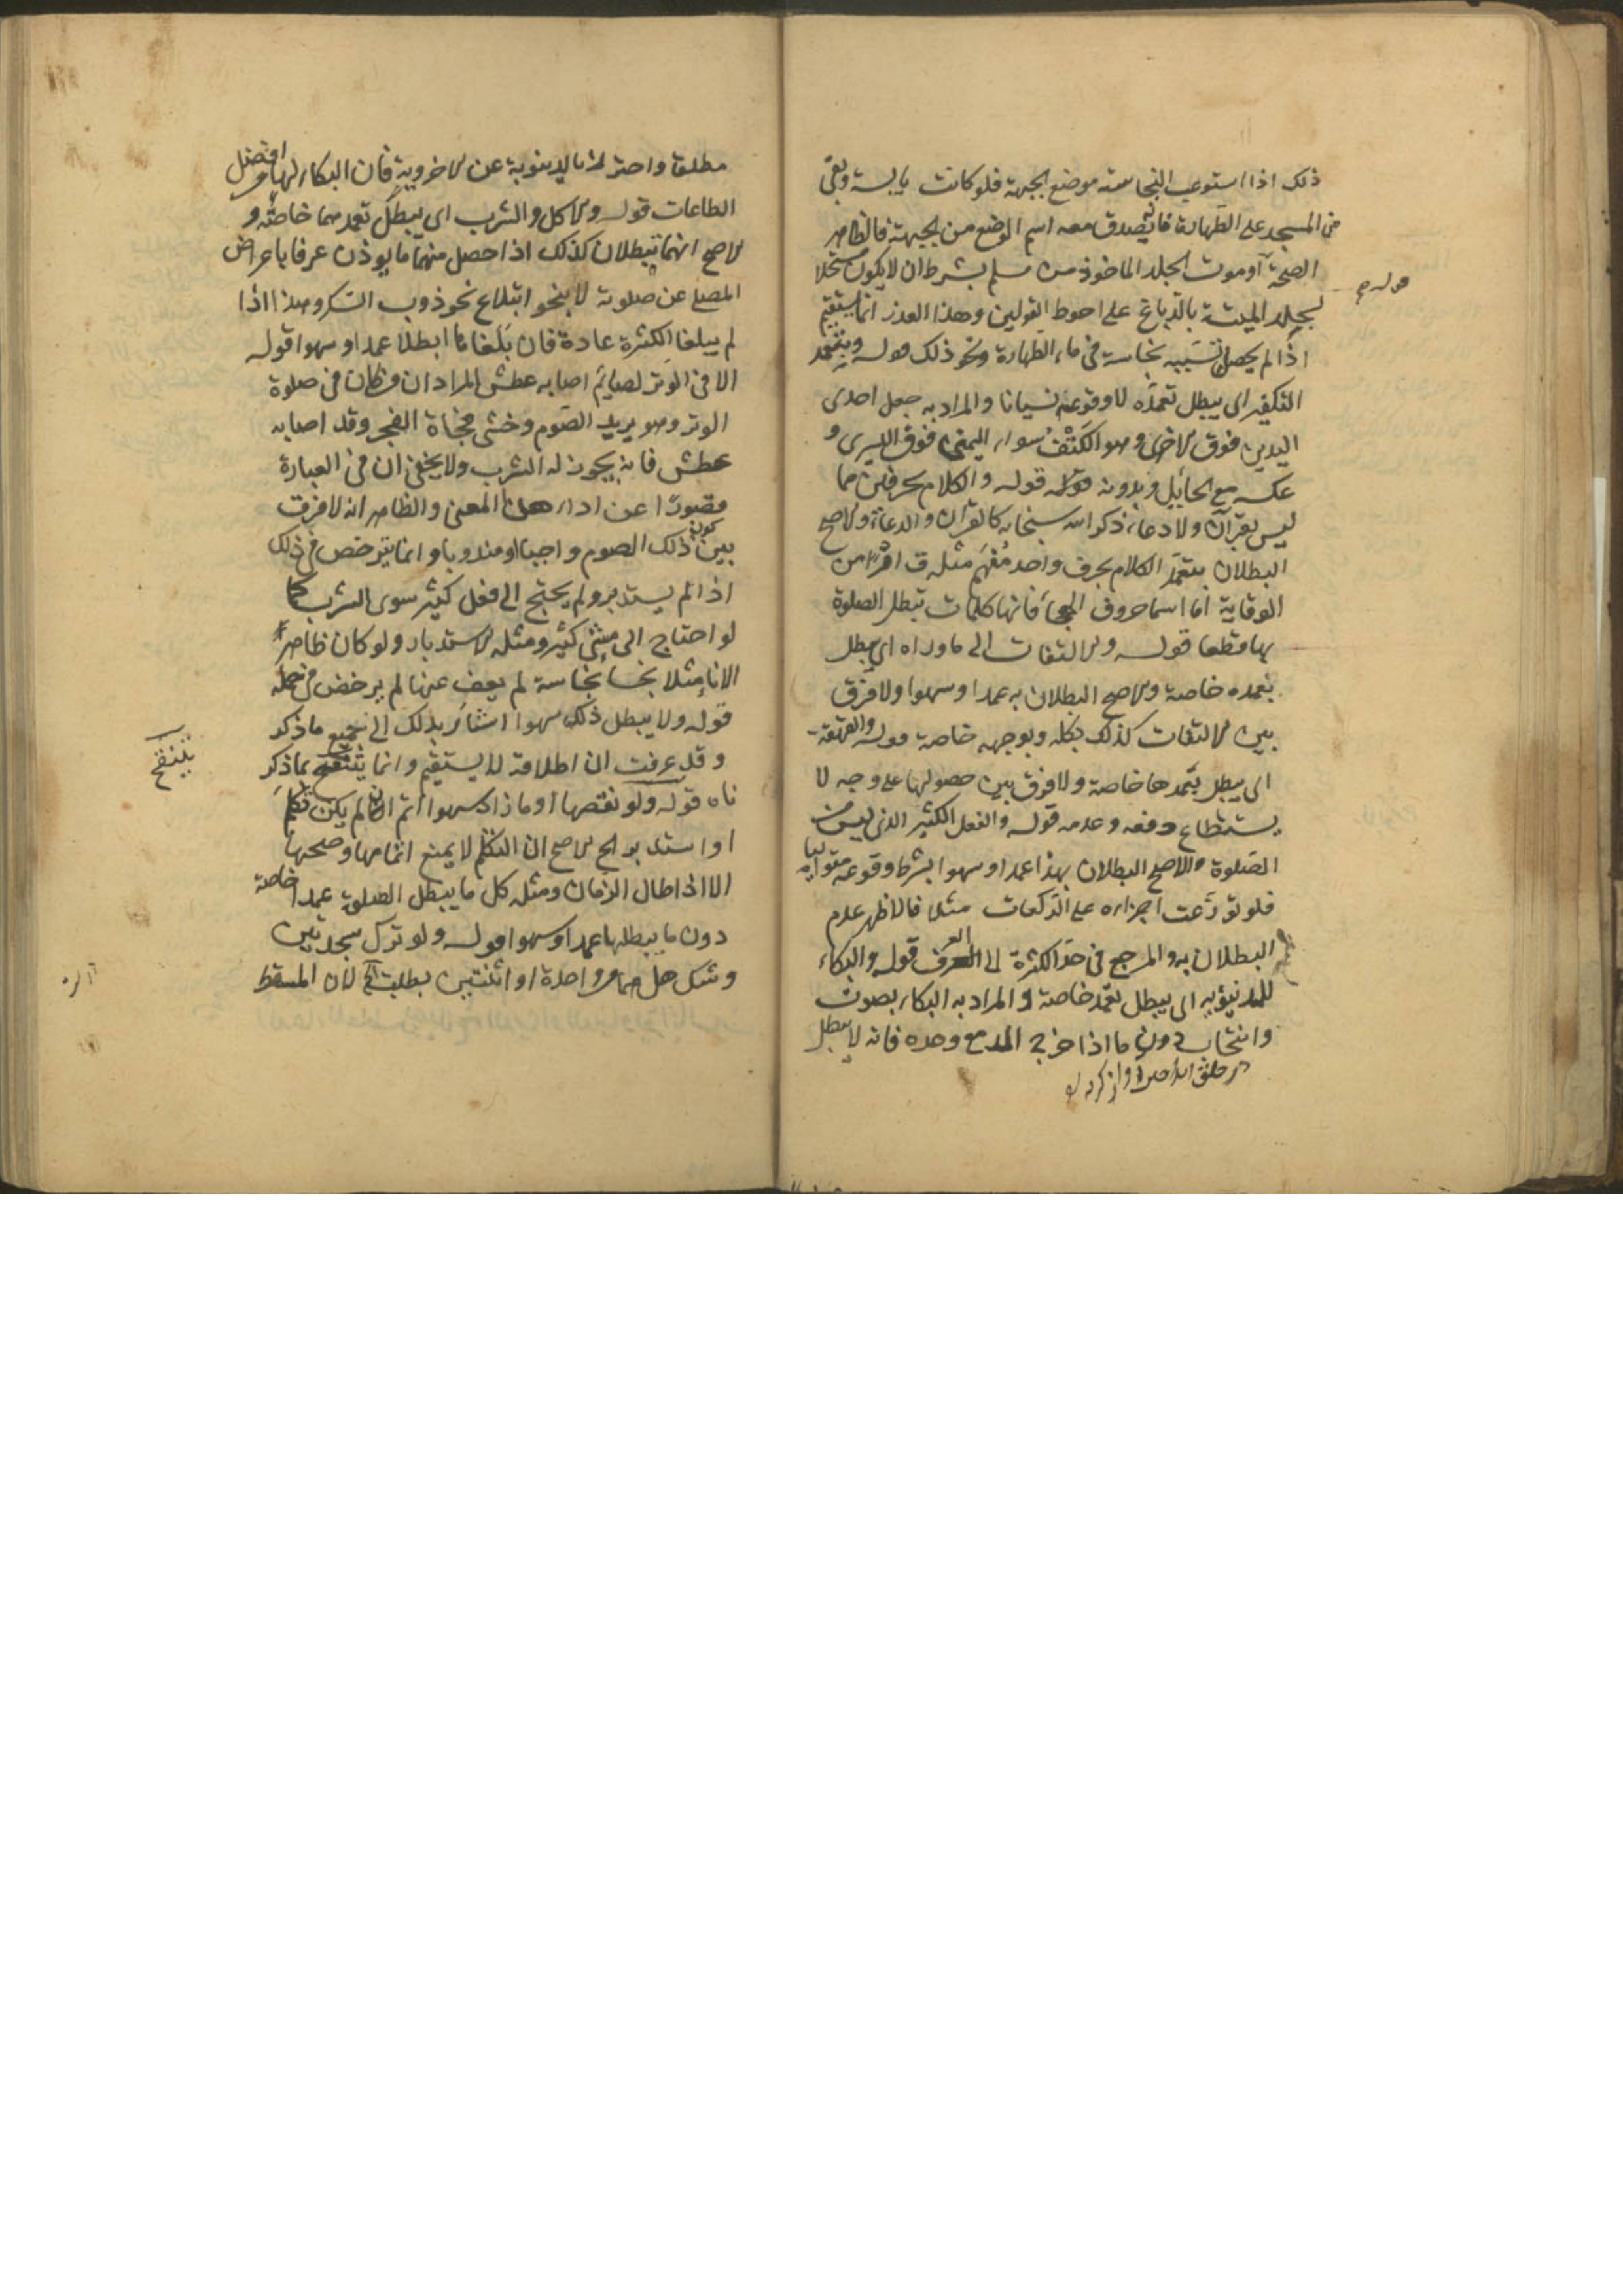 ذلك اذا استوعب النجاسة موضع الجبهة فلو كانت يابسة وبقي
من المسجد على الطهارة ما يصدق معه اسم الوضع من الجبهة فالظاهر
الصحة او موت الجلد الماخوذ من مسلم بشرط ان لا يكون مستحلا
لجلد الميتة بالدباغ على احوط القولين وهذا العذر انما يستقيم
اذا لم يحصل بسببه نجاسة في ماء الطهارة ونحو ذلك قوله وبتعمد
التكفير اى يبطل تعمده لا وقوعه نسيانا والمراد به جعل احدى
اليدين فوق الاخرى وهو الكتف سواء اليمنى فوق اليسرى و
عكسه مع الحايل وبدونه قوله والكلام بحرفين مما
ليس بقرآن ولا دعاء ذكر الله سبحانه كالقرآن والدعاء والاصح
البطلان بتعمد الكلام بحرف واحد مفهم مثل ق امرا من
الوقاية اما اسما حروف الهجاء فانها كلمات تبطل الصلوة
بها قطعا قوله والالتفات الى ما وراه اى يبطل
بتعمده خاصة والاصح البطلان به عمدا وسهوا ولا فرق
بين الالتفات كذلك بكله وبوجهه خاصة قوله والقهقهة
اى يبطل بتعمدها خاصة ولا فرق بين حصولها على وجه لا
يستطاع دفعه وعدمه قوله والفعل الكثير الذى ليس من
الصلوة والاصح البطلان بهذا عمدا وسهوا بشرط وقوعه متواليا
فلو توزعت اجزاءه على الركعات مثلا فالاظهر عدم
البطلان به والمرجع في حد الكثرة الى العرف قوله والبكاء
للدنيوية اى يبطل تعمد خاصة والمراد به البكاء بصوت
وانتحاب دون ما اذا خرج الدمع وحده فانه لا يبطل
مطلقا واحترز بالدنيوية عن الاخروية فان البكاء لها افضل
الطاعات قوله والاكل والشرب اى يبطل تعمدهما خاصة و
الاصح انهما يبطلان كذلك اذا حصل منهما ما يوذن عرفا باعراض
المصلى عن صلوته لا بنحو ابتلاع نحو ذوب السكر وهذا اذا
لم يبلغا الكثرة عادة فان بلغاها ابطلا عمدا وسهوا قوله
الا في الوتر لصايم اصابه عطش المراد ان من كان في صلوة
الوتر وهو يريد الصوم وخشى فجاة الفجر وقد اصابه
عطش فانه يجوز له الشرب ولا يخفى ان في العبارة
قصورا عن اداء هذا المعنى والظاهر انه لا فرق
بين كون ذلك الصوم واجبا او مندوبا وانما يترخص في ذلك
اذا لم يستدبر ولم يحتج الى فعل كثير سوى الشرب كما
لو احتاج الى مشى كثير ومثله الاستدبار ولو كان ظاهر
الاناء مثلا نجسا بنجاسة لم يعف عنها لم يرخص في حمله
قوله ولا يبطل ذلك سهوا اشار بذلك الى جميع ما ذكر
وقد عرفت ان اطلاقه لا يستقيم وانما يتنقح بما ذكر
ناه قوله ولو نقصها او ما زاد سهوا اتم ان لم يكن تكلم
او استدبر الخ الاصح ان التكلم لا يمنع اتمامها وصحتها
الا اذا طال الزمان ومثله كل ما يبطل الصلوة عمدا خاصة
دون ما يبطلها عمدا وسهوا قوله ولو ترك سجدتين
وشك هل هما من واحدة او اثنتين بطلت الخ لان المسقط